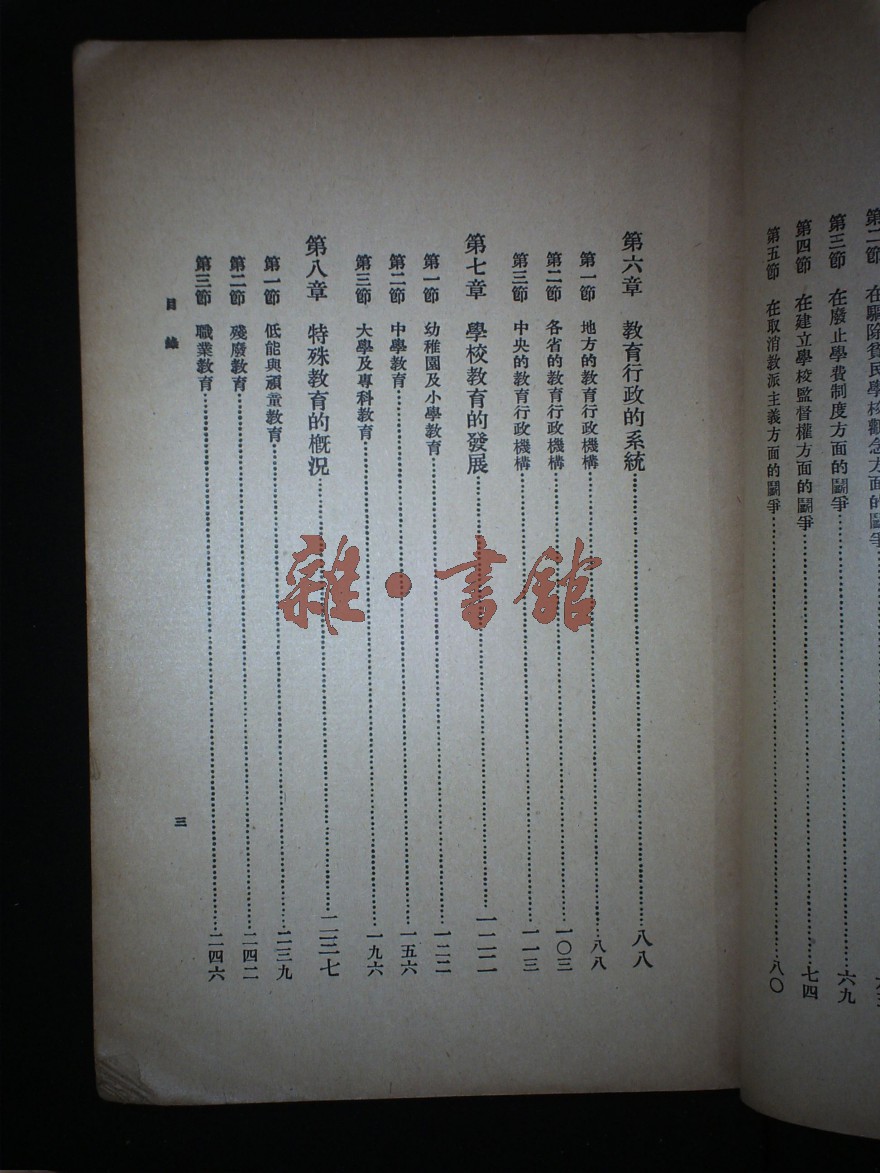 第二節 在驅除貧民學校觀念方面的鬭爭
第三節 在廢止學費制度方面的鬭爭 六九
第四節 在建立學校監督權方面的鬭爭 七四
第五節 在取消教派主義方面的鬭爭 八〇
第六章 教育行政的系統 八八
第一節 地方的教育行政機構 八八
第二節 各省的教育行政機構 一〇三
第三節 中央的教育行政機構 一一三
第七章 學校教育的發展 一二二
第一節 幼稚園及小學教育 一二二
第二節 中學教育 一五六
第三節 大學及專科教育 一九六
第八章 特殊教育的概況 二三七
第一節 低能與頑童教育 二三九
第二節 殘廢教育 二四二
第三節 職業教育 二四六
目錄
三
雜·書館